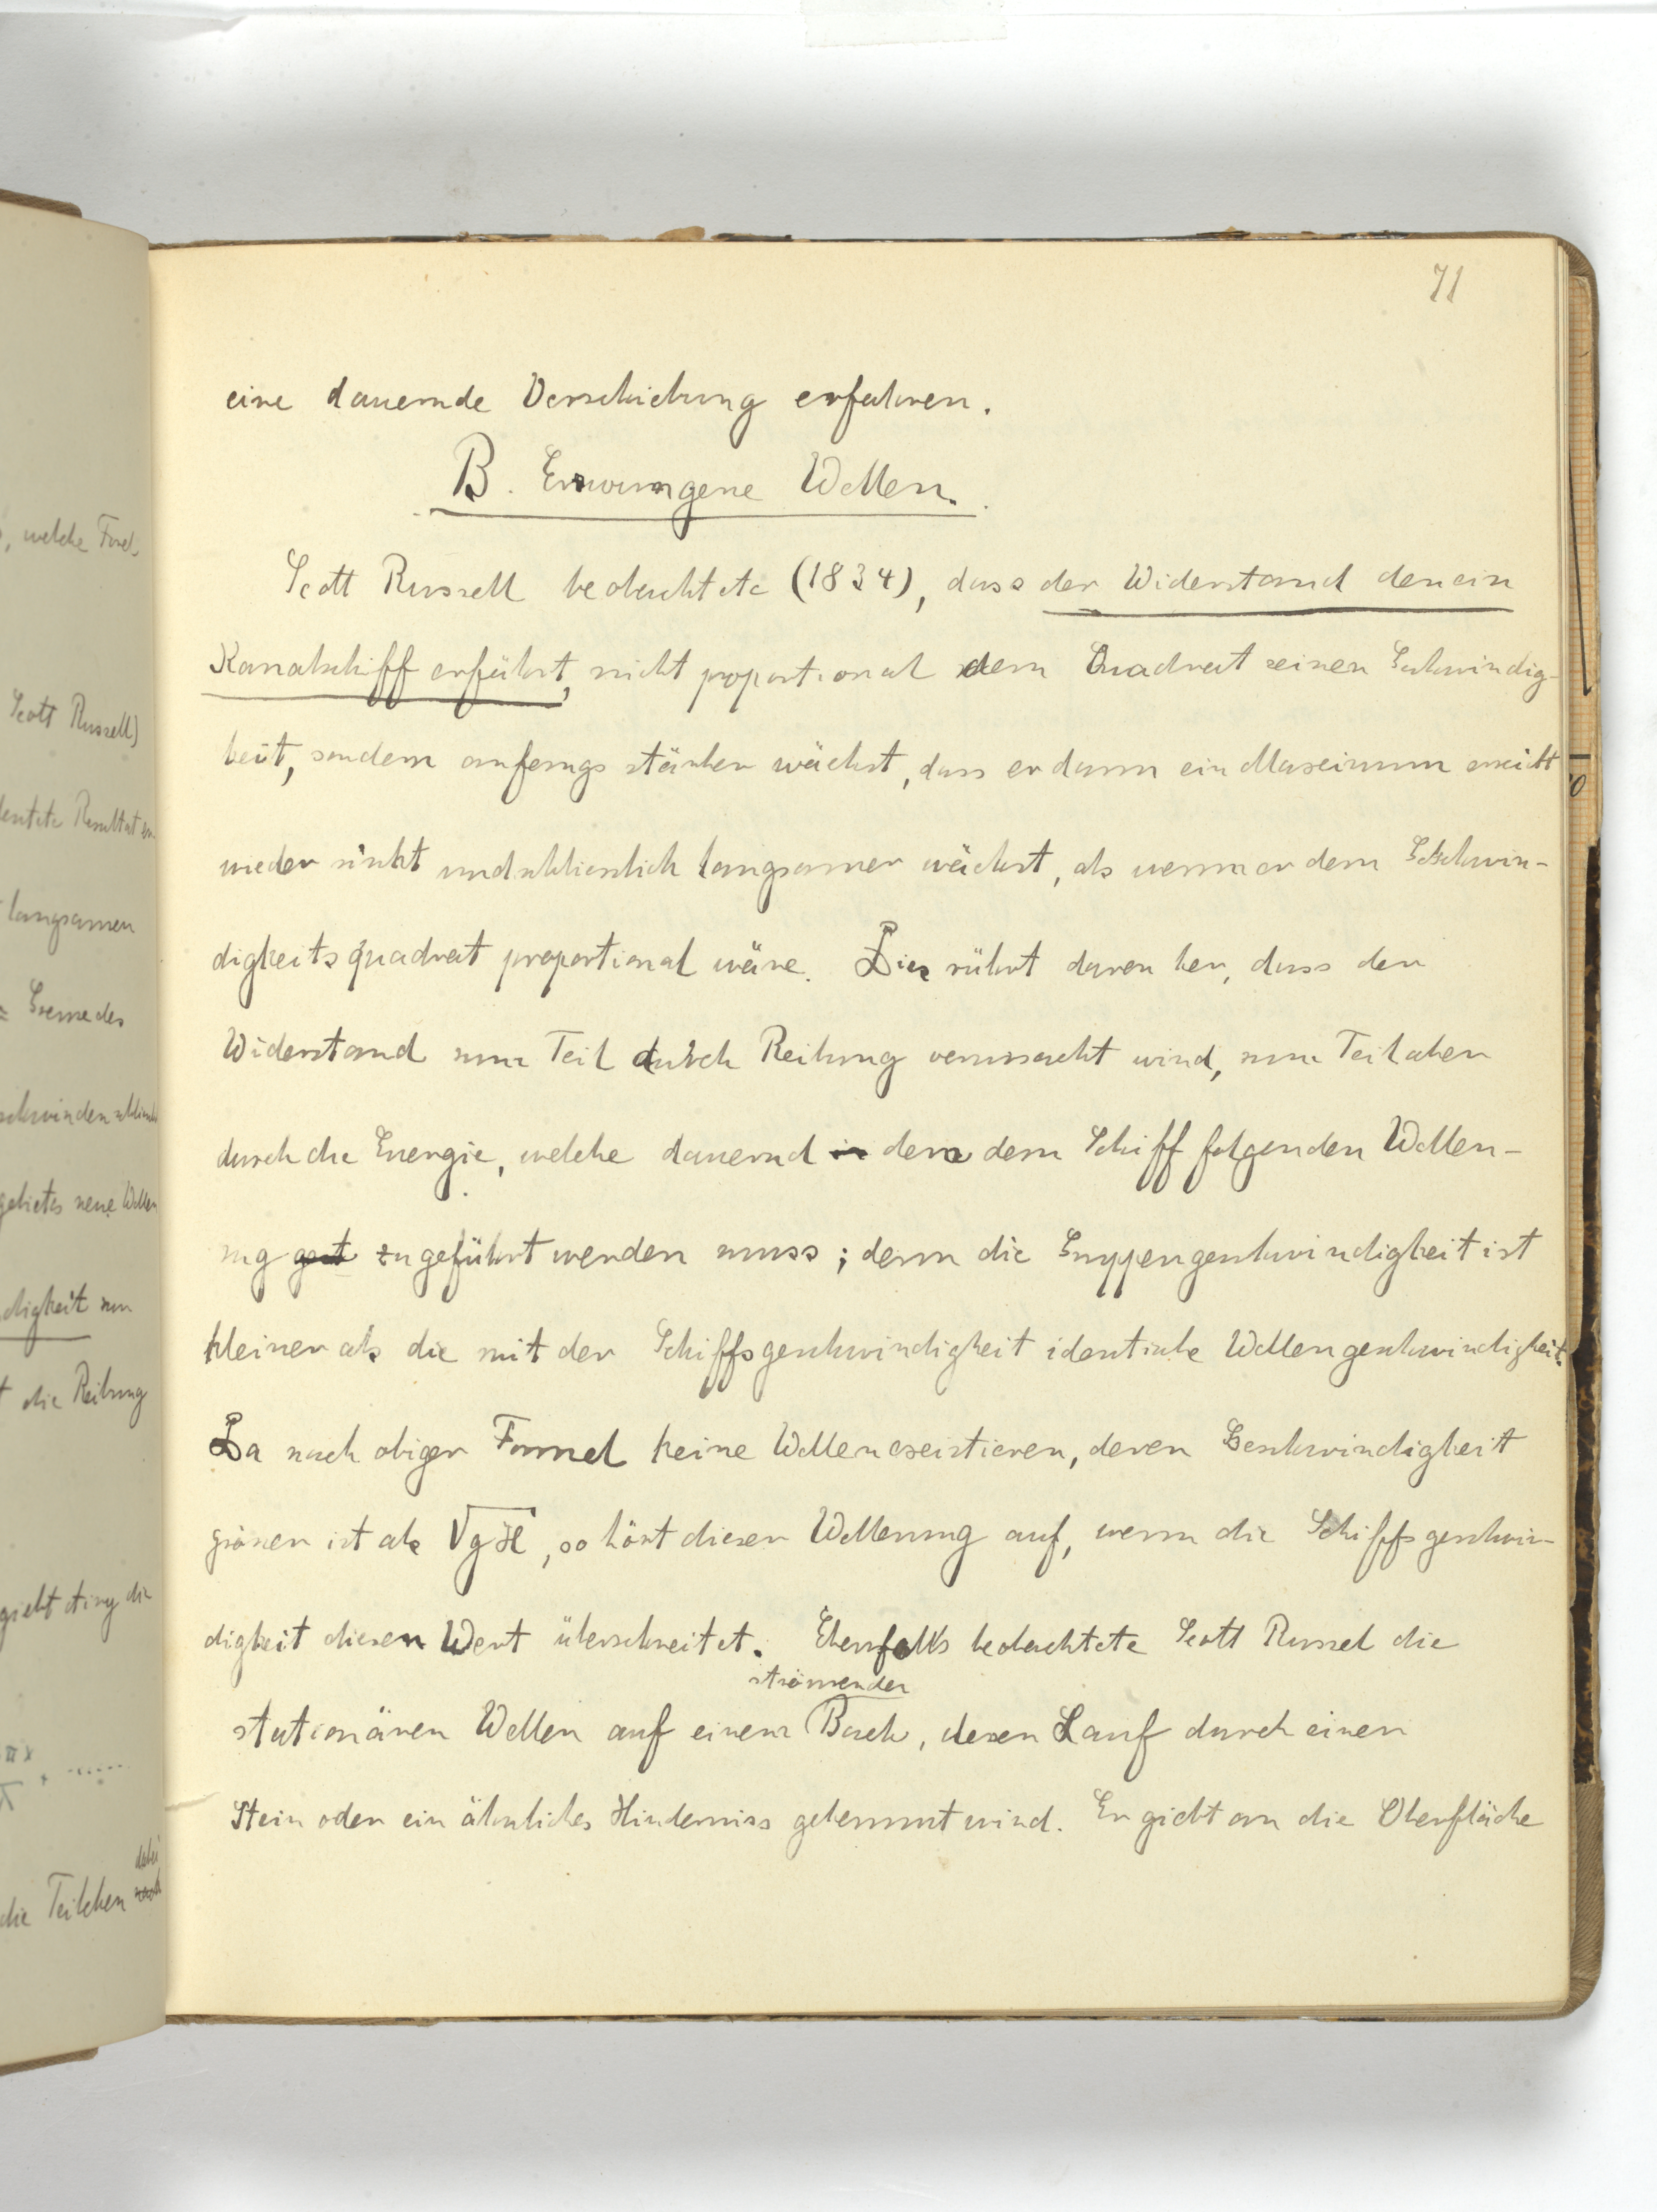 71
eine dauernde Verschiebung erfahren.
B. Erzwungene Wellen.
Scott Russell beobachtete (1834), dass der Widerstand den ein
Kanalschiff erfährt, nicht proportional dem Quadrat seiner Schwindig-
keit, sondern anfangs stärker wächst, dass er dann ein Maximum erreicht
wieder sinkt und schliesslich langsamer wächst, als wenn er dem Schwin-
digkeitsquadrat proportional wäre. Dies rührt daven her, dass der
Widerstand zum Teil durch Reibung verursacht wird, zum Teil aber
durch die Energie, welche dauernd in dem dem Schiff folgenden Wellen-
zug get zugeführt werden muss; denn die Gruppengeschwindigkeit ist
kleiner als die mit der Schiffsgeschwindigkeit identische Wellengeschwindigkeit.
Da nach obiger Formel keine Wellen existieren, deren Geschwindigkeit
grösser ist als √gH, so hört dieser Wellenzug auf, wenn die Schiffsgeschwin-
digkeit diesen Wert überschreitet. Ebenfalls beobachtete Scott Russel die
strömender
stationären Wellen auf einem Bach, dessen Lauf durch einen
Stein oder ein ähnliches Hinderniss gehemmt wird. Er giebt an die Oberfläche
, welche Forel
Scott Russell)
deutete Resultat
langsamen
= Grenze des
schwinden
gebietes neue Wellen
digkeit
die Reibung
giebt
die Teilchen
dabei
nach
10